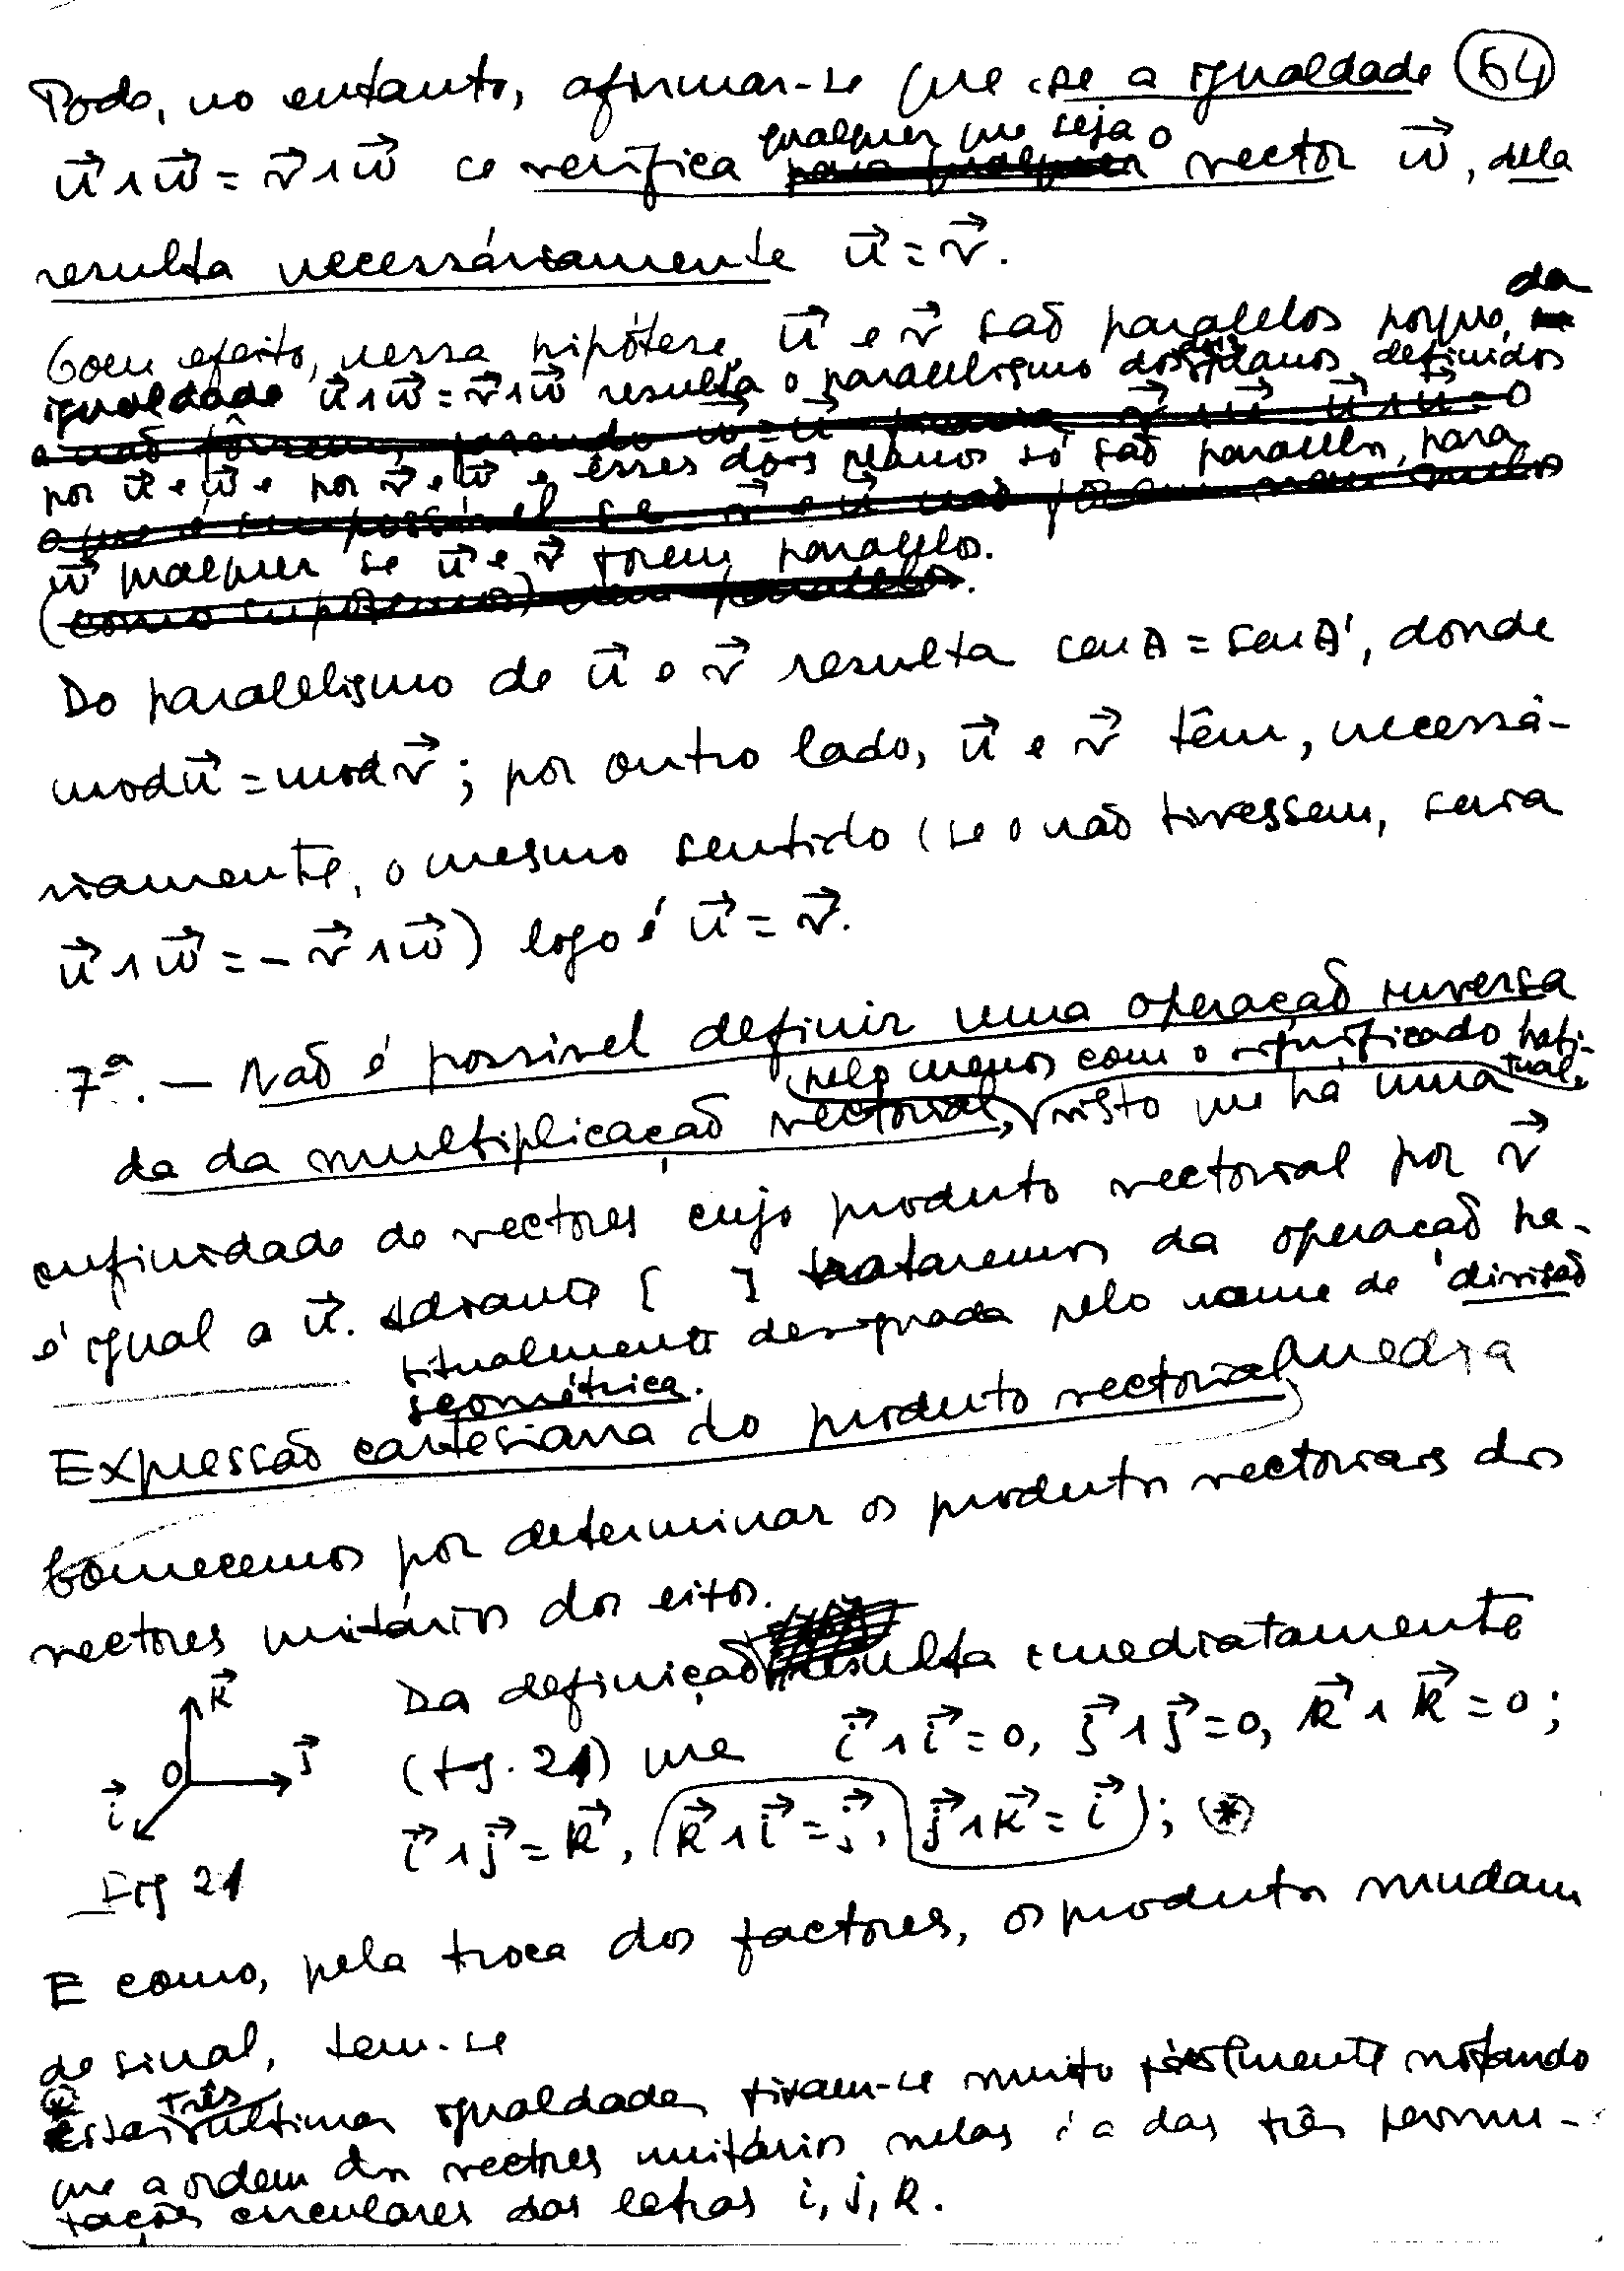 Pode, no entanto, afirmar-se que se a igualdade (64)
u⃗ ∧ w⃗ = v⃗ ∧ w⃗ se verifica qualquer que seja o vector w⃗, dela
resulta necessáriamente u⃗ = v⃗.
Com efeito, nessa hipótese, u⃗ e v⃗ são paralelos porque, da
igualdade u⃗ ∧ w⃗ = v⃗ ∧ w⃗ resulta o paralelismo dos dois planos definidos
por u⃗ e w⃗ e por v⃗ e w⃗ e êsses dois planos só são paralelos, para
w⃗ qualquer se u⃗ e v⃗ forem paralelos.
Do paralelismo de u⃗ e v⃗ resulta sen A = sen A', donde
mod u⃗ = mod v⃗; por outro lado, u⃗ e v⃗ têm, necessá-
riamente, o mesmo sentido (se o não tivessem, seria
u⃗ ∧ w⃗ = - v⃗ ∧ w⃗) logo é u⃗ = v⃗.
7ª. — Não é possível definir uma operação inversa
da da multiplicação vectorial, (pelo menos com o significado habi-
tual, visto que há uma
infinidade de vectores cujo produto vectorial por v⃗
é igual a u⃗. Adiante [ ] trataremos da operação ha-
bitualmente designada pelo nome de divisão
geométrica.
Expressão cartesiana do produto vectorial
Comecemos por determinar os produtos vectoriais dos
vectores unitários dos eixos.
Da definição resulta imediatamente
(fig. 21) que i⃗ ∧ i⃗ = 0, j⃗ ∧ j⃗ = 0, k⃗ ∧ k⃗ = 0;
i⃗ ∧ j⃗ = k⃗, k⃗ ∧ i⃗ = j⃗, j⃗ ∧ k⃗ = i⃗; (*)
k⃗
O j⃗
i⃗
Fig 21
E como, pela troca dos factores, os produtos mudam
de sinal, tem-se
(*) Estas três últimas igualdades fixam-se muito facilmente notando
que a ordem dos vectores unitários nelas é a das três permu-
tações circulares das letras i, j, k.